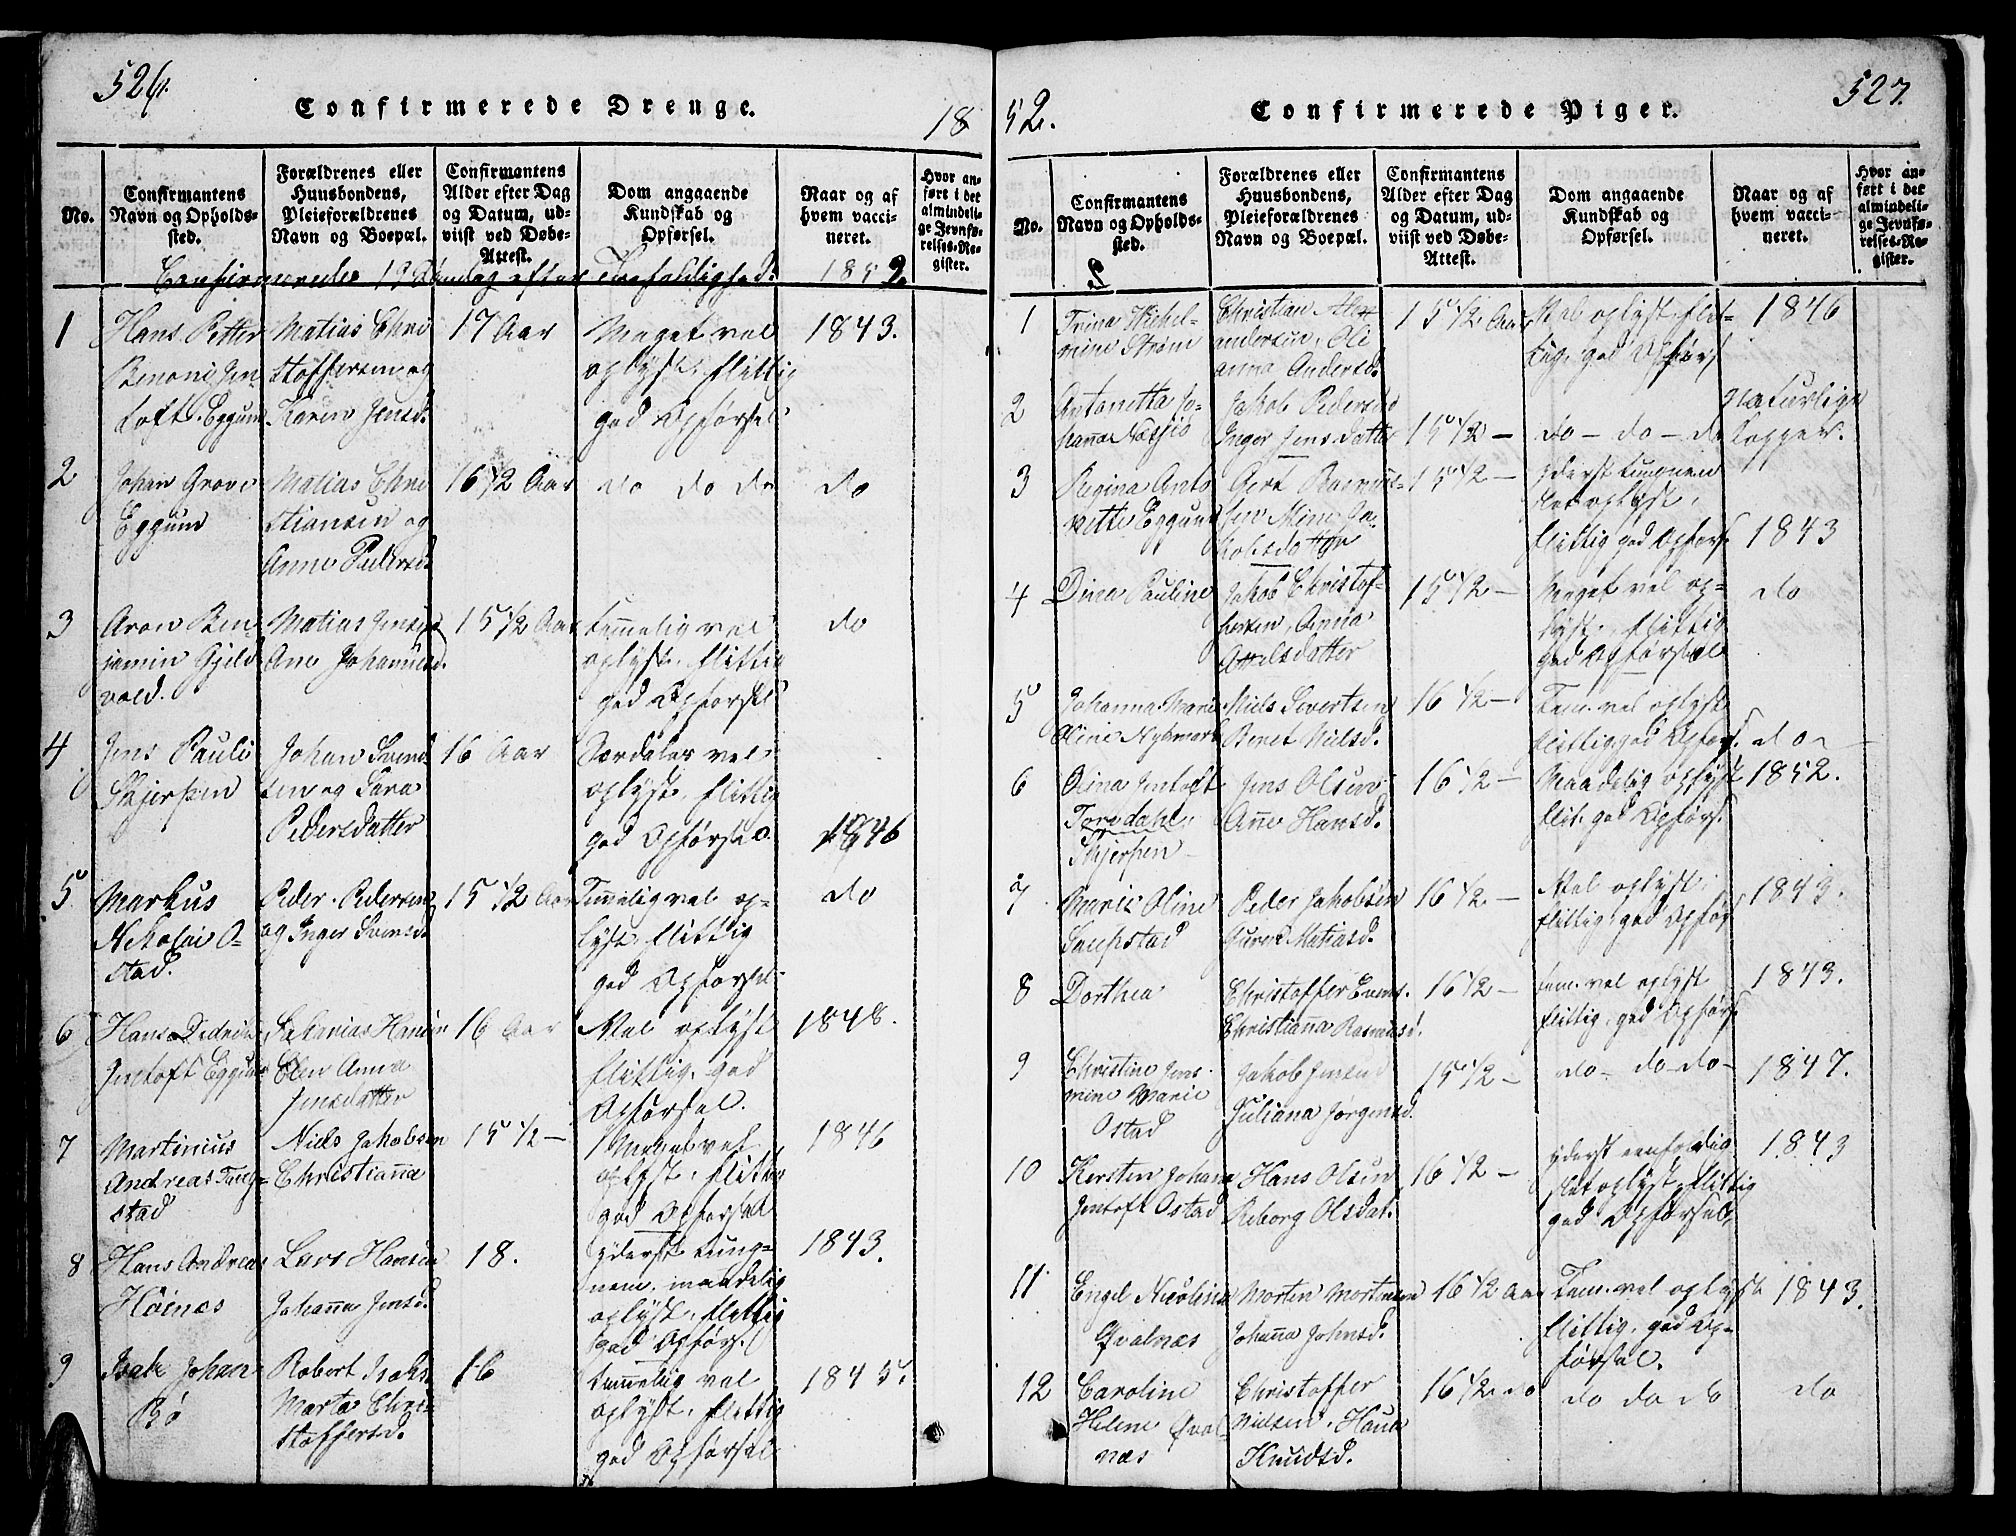 526.
Confirmerede Drenge.
18
No.
Confirmantens
Navn og Opholds-
sted.
Forældrenes eller
Huusbondens,
Pleieforældrenes
Navn og Boepæl.
Confirmantens
Alder efter Dag
og Datum, ud-
viist ved Døbe-
Attest.
Dom angaaende
Kundskab og
Opførsel.
Naar og af
hvem vacci-
neret.
Hvor an-
ført i det
almindeli-
ge Jevnfø-
relses-Re-
gister.
Confirmerede 19 Søndag efter Trefoldighed: 1852
1
Hans Petter
Benoni Jen
toft. Eggum
Matias Chri
stoffersen og
Karen Jensd.
17 Aar
Meget vel
oplyst, flittig
god Opførsel
1843.
2
Johan Grove
Eggum
Matias Chri
stiansen og
Anne Pedersd
16 1/2 Aar
do do do
do
3
Aron Ben-
jamin Gjeld
vold.
Matias Jensen
Ane Johannesd.
15 1/2 Aar
temmelig vel
oplyst. flittig
god Opførsel
do
4
Jens Pauli
Skjerpen
Johan Svend
sen og Sara
Pedersdatter
16 Aar
Særdeles vel
oplyst, flittig
god Opførsel
1846
5
Markus
Nikolai O-
stad.
Peder Pedersen
og Inger Svensd.
15 1/2 Aar
Temmelig vel op-
lyst, flittig
god Opførsel
do
6
Hans Didrik
Jentoft Eggum
Sakarias Hansen
Elen Anna
Jensdatter
16 Aar
Vel oplyst
flittig, god
Opførsel.
1848.
7
Martinius
Andreas Tang-
stad
Niels Jakobsen
Christianna
15 1/2 —
Meget vel
oplyst, flittig
god Opførsel
1846
8
Hans Andreas
Høinæs
Lars Hansen
Johanna Jensd.
18.
yderst tung-
nem. maadelig
oplyst, flittig
god Opførs.
1843.
9
Isak Johan
Bø
Robert Isaks.
Marta Chri-
stoffersd.
16
temmelig vel
oplyst, flittig
god Opførsel
1845.
52.
Confirmerede Piger.
527.
No.
Confirmantens
Navn og Opholds-
sted.
Forældrenes eller
Huusbondens,
Pleieforældrenes
Navn og Boepæl.
Confirmantens
Alder efter Dag
og Datum, ud-
viist ved Døbe-
Attest.
Dom angaaende
Kundskab og
Opførsel.
Naar og af
hvem vacci-
neret.
Hvor an-
ført i det
almindeli-
ge Jevnfø-
relses-Re-
gister.
1
Trina Wihel-
mine Strøm
Christian Alex
andersen, Oli
anna Andersd.
15 1/2 Aar
Vel oplyst, flit-
tig, god Opførs
1846
2
Antonetta Jo-
hanna Næsjio
Jakob Pedersen
Inger Jensdatter
15 1/2 —
do — do — do
naturlige
Kopper.
3
Regina Anto
nette Eggum
Gert Rasmus-
sen Mine Ja-
kobsdatter
15 1/2 —
yderst tungnem
slet oplyst,
flittig god Opførs.
1843
4
Dina Pauline
Jakob Christof-
fersen, Anna
Attelsdatter
15 1/2 —
Meget vel op-
lyst, flittig
god Opførsel
do
5
Johanna Marie
Oline Nykmark
Niels Sivertsen
Beret Nilsd.
16 1/2 —
Tem. vel oplyst
flittig, god Opførs.
do
6
Olina Jentoft
Toredahl,
Skjerpen
Jens Olsen
Anne Hansd.
16 1/2 —
Maadelig oplyst
flit. god Opførs.
1852.
7
Marie Oline
Saupstad
Peder Jakobsen
Guren Matiasd.
16 1/2 —
Vel oplyst,
flittig, god Opførs
1843.
8
Dorthea
Christoffer Evens.
Christianna Rasmusd.
16 1/2 —
tem. vel oplyst
flittig, god Opførs
1843.
9
Christine Jens-
mine Marie
Ostad
Jakob Jensen
Juliana Jørgensd.
15 1/2 —
do — do — do —
1847.
10
Kersten Johana
Jentoft Ostad
Hans Olsen
Reborg Olsdat.
16 1/2 —
yderst eenfoldig
slet oplyst, flittig
god Opførsel,
1843
11
Engel Nicolina
Qvalnæs
Morten Mortensen
Johanna Johnsd.
16 1/2 Aar
Tem. vel oplyst
flittig, god Op-
førsel.
1843.
12
Caroline
Helene Qval
næs
Christoffer
Nielsen, Hana
Knudsd.
16 1/2 do
do do do
do